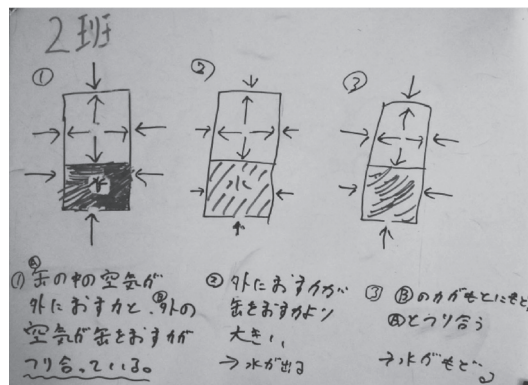 2班
①
②
③
水
水
Ⓐ
①缶の中の空気が
外におす力と、Ⓑ外の
空気が缶をおす力が
つり合っている。
②外におす力が
缶をおす力より
大きい、
→水が出る
③Ⓑの力がもとにもど
Ⓐとつり合う
→水がもどる